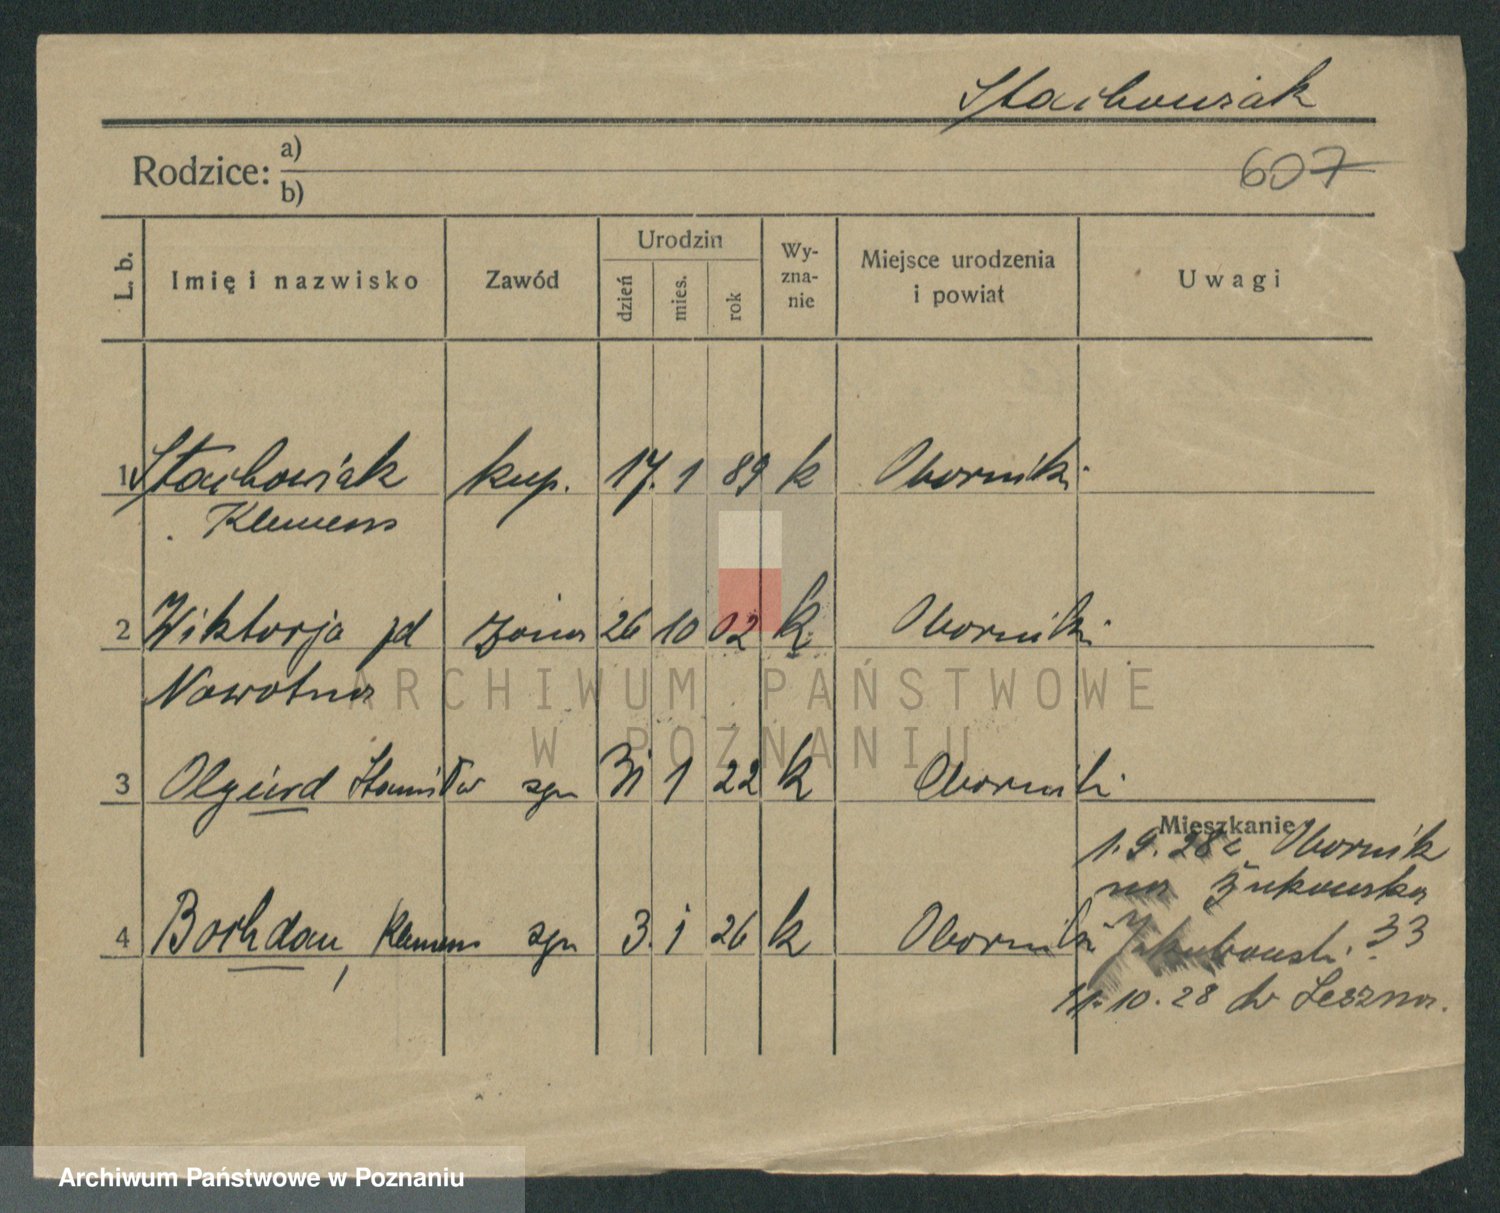 Stachowiak
Rodzice: a)
b)
607
L. b.
Imię i nazwisko
Zawód
Urodzin
dzień
mies.
rok
Wy-
zna-
nie
Miejsce urodzenia
i powiat
Uwagi
1 Stachowiak kup. 17. 1 89 k Oborniki
Klemens
2 Wiktorja zd żona 26 10 02 k Oborniki
Nowotna
3 Olgierd Stanisław syn 31 1 22 k Oborniki
Mieszkanie
1.9.28 z Obornik
na Żukowska
4 Bohdan, Klemens syn 3. 1 26 k Oborniki
33
11.10.28 do Leszna.
ARCHIWUM PAŃSTWOWE
W POZNANIU
Archiwum Państwowe w Poznaniu